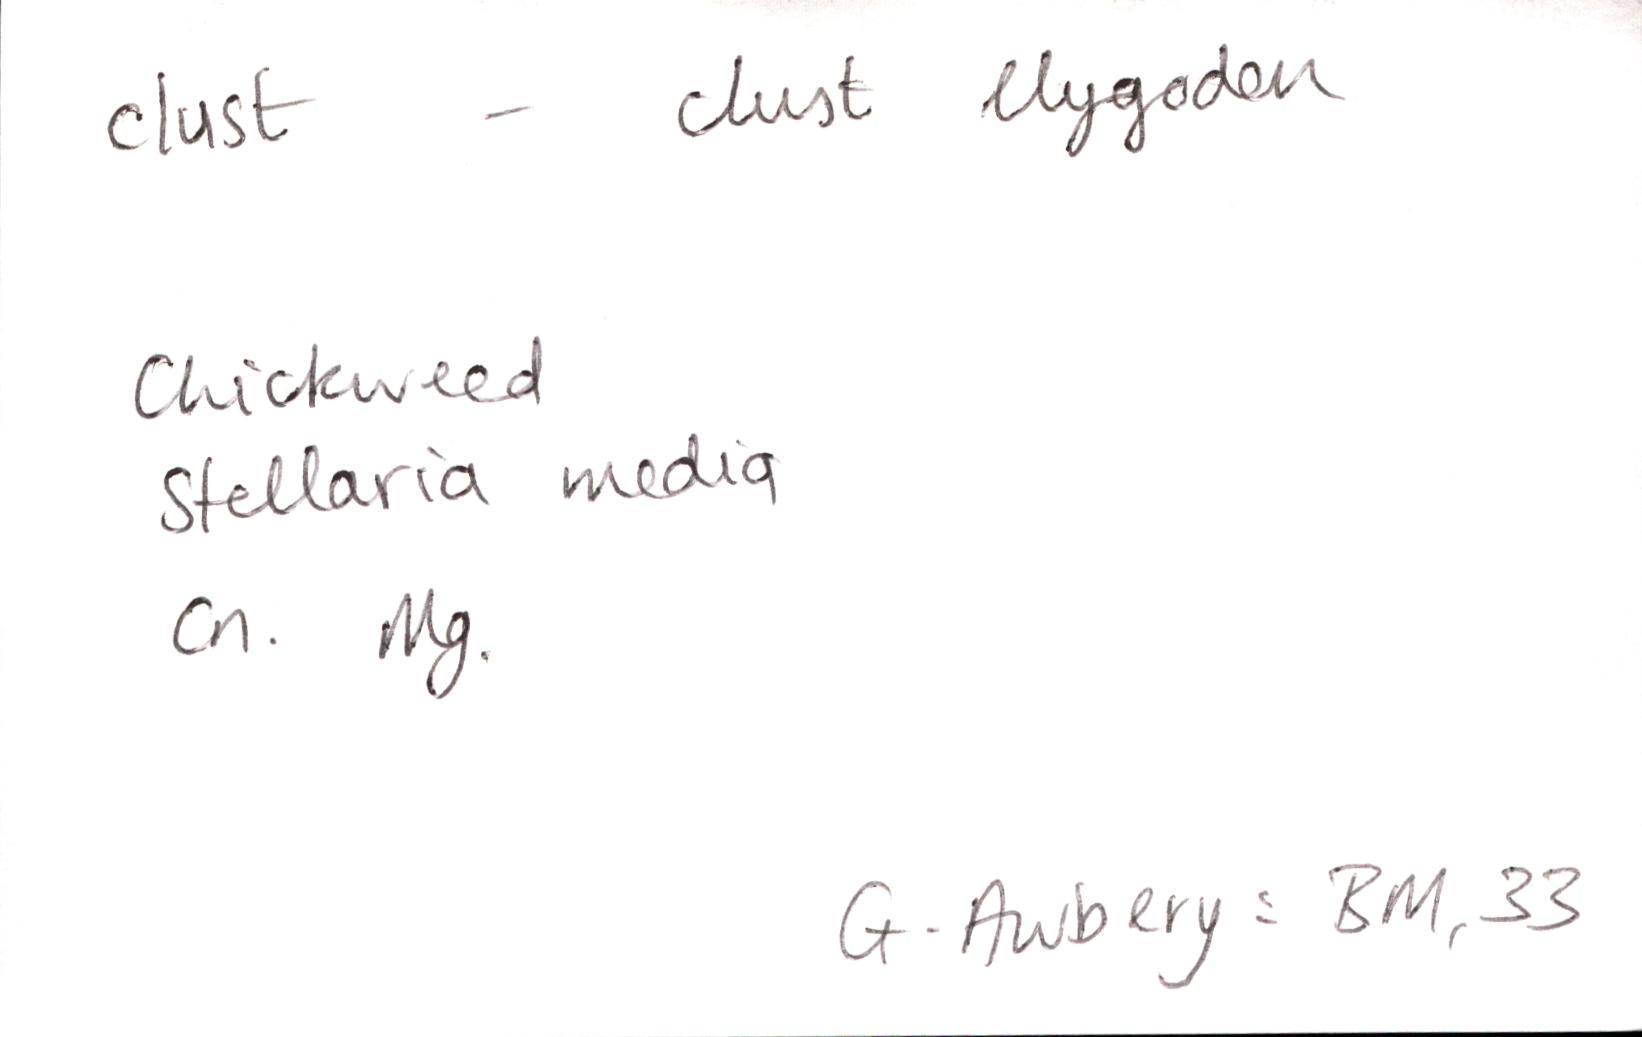 clust - clust llygoden
Chickweed
Stellaria media
Cn. Mg.
G. Awbery: BM, 33